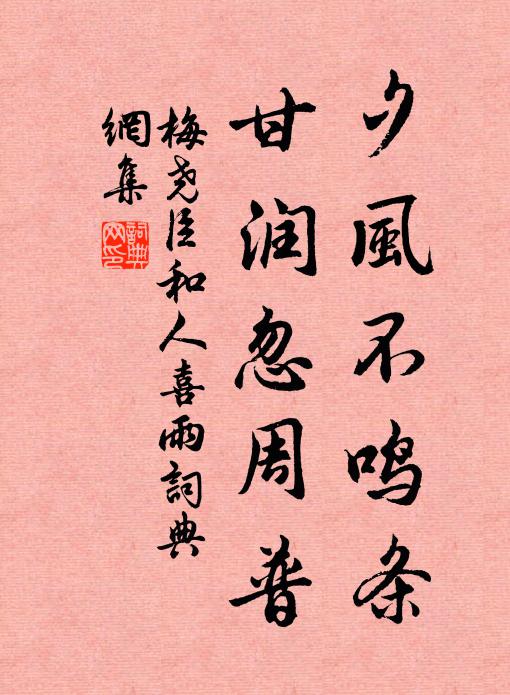 夕風不鸣条
甘润忽周普
梅尧臣和人喜雨詞典
網集
詞典
网印